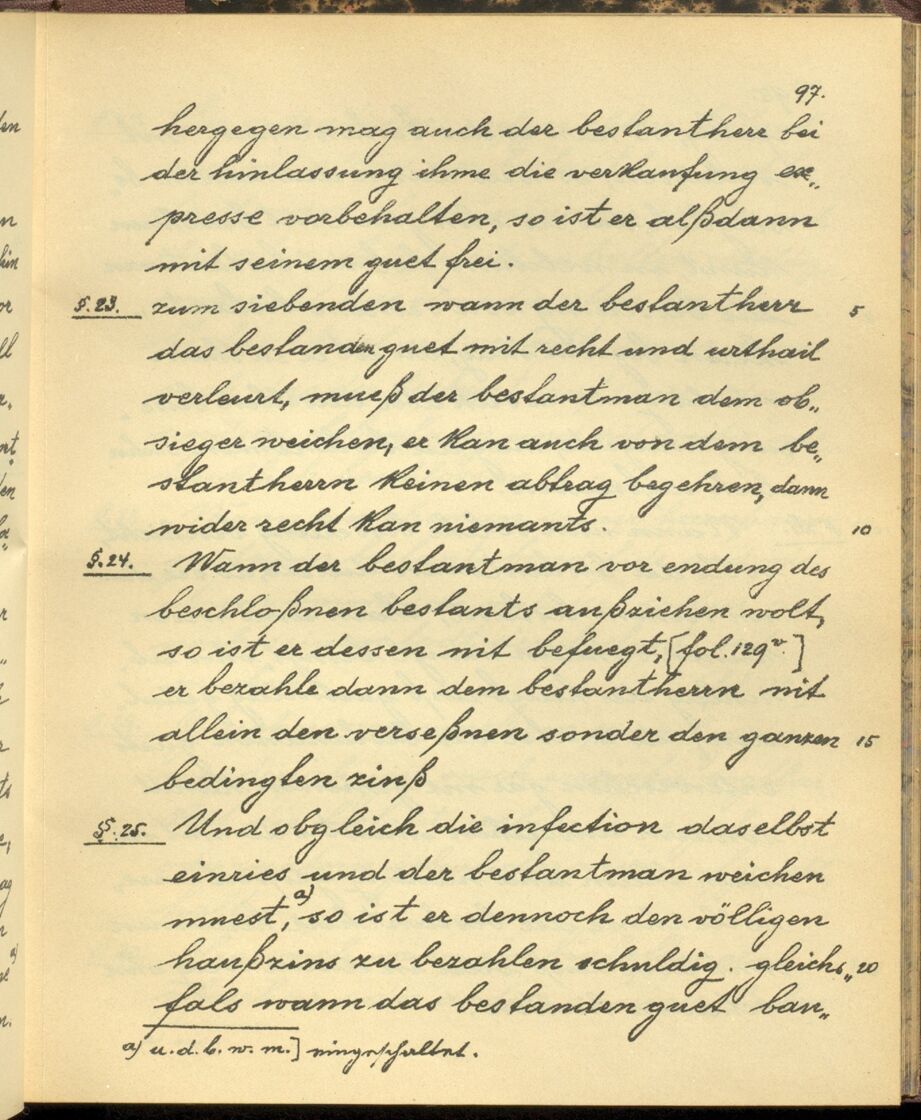 97.
hergegen mag auch der bestantherr bei
der hinlassung ihme die verkaufung ex„
presse vorbehalten, so ist er alßdann
mit seinem guet frei.
§. 23. zum siebenden wann der bestantherr 5
das bestanden guet mit recht und urthail
verleurt, mueß der bestantman dem ob„
sieger weichen, er kan auch von dem be„
stantherrn keinen abtrag begehren, dann
wider recht kan niemants. 10
§. 24. Wann der bestantman vor endung des
beschloßnen bestants außziehen wolt,
so ist er dessen nit befuegt, [fol. 129v.]
er bezahle dann dem bestantherrn nit
allein den verseßnen sonder den ganzen 15
bedingten zinß
§. 25. Und obgleich die infection daselbst
einries und der bestantman weichen
muest, a) so ist er dennoch den völligen
haußzins zu bezahlen schuldig. gleichs„ 20
fals wann das bestanden guet bau„
a) u. d. b. w. m.] eingeschaltet.
den
n
hin
or
ll
nt
den
r
ts
e,
ag
n
a)
n.